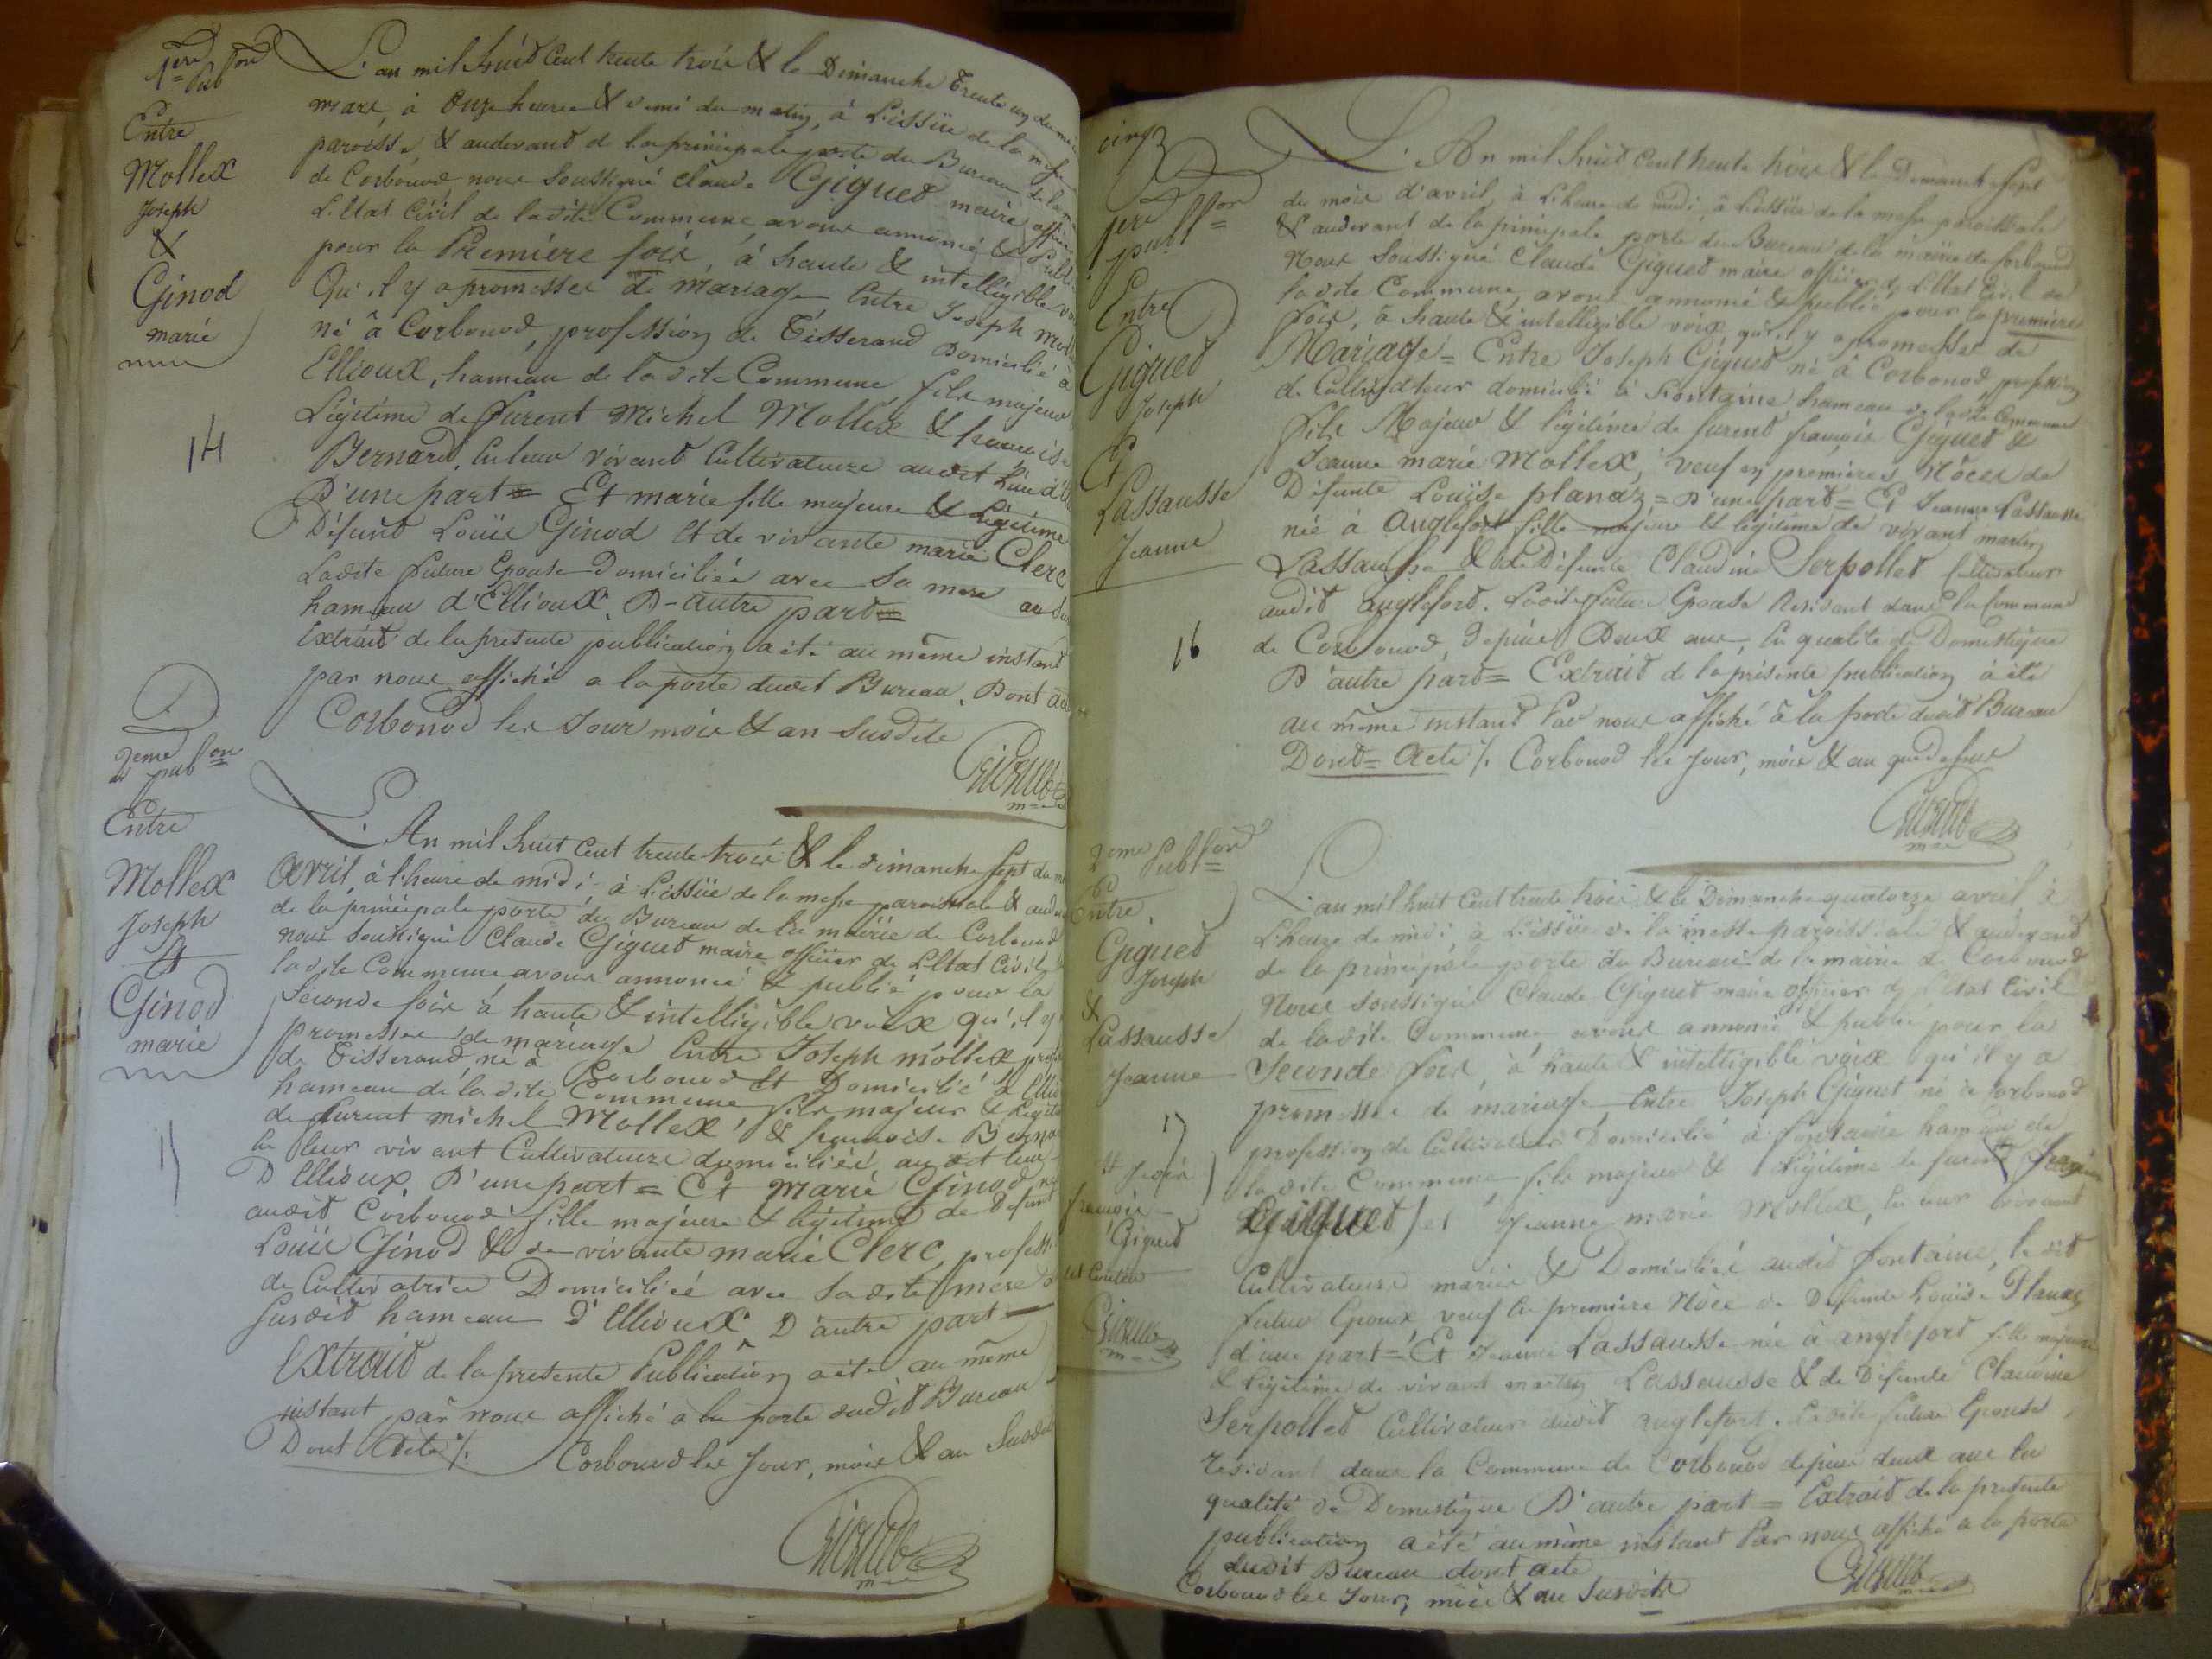 1ere Pub on
Entre
Mollex
Joseph
&
Ginod
marie
14
L'an mil huit Cent trente trois & le Dimanche Trente un du mois
mars, à Onze heures & demi du matin, à L'issüe de la messe
paroisse & audevant de la principale porte du Bureau de la
de Corbonod nous Soussigné Claude Giguet maire officier
L'Etat Civil de ladite Commune avons annoncé & Publié
pour la Première fois, à haute & intelligible voix
Qu'il y a promesses de mariage Entre Joseph Mollex
né à Corbonod, profession de Tisserand Domicilié à
Ellioux, hameau de la dite Commune fils majeur
Légitime de furent Michel Mollex & françoise
Bernard, Eu leur vivant Cultivateurs audit Lieu
D'une part = Et marie fille majeure & Légitime
Défunt Louis Ginod Et de vivante marie Clerc
Ladite future Epouse Domiciliée avec Sa mere au
hameau d'Ellioux D-autre part =
Extrait de la presente publication a été au même instant
par nous affiché a la porte dudit Bureau. Dont
Corbonod les Jour mois & an Susdits
Giguet
m
2eme pub on
Entre
Mollex
Joseph
&
Ginod
marie
15
L'An mil huit Cent trente trois & le dimanche Sept du
avril, à l'heure de midi, à L'issüe de la messe paroissiale &
de la principale porte du Bureau de la mairie de Corbonod
nous Soussigné Claude Giguet maire officier de L'Etat Civil
ladite Commune avons annoncé & publié pour la
Seconde fois à haute & intelligible voix qu'il y
promesses de mariage Entre Joseph mollex
de Tisserand, né à Corbonod Et Domicilié à
hameau de la dite Commune fils majeur &
de furent michel Mollex, & françoise
En leur vivant Cultivateurs domiciliés audit lieu
D'Ellioux D'une part = Et Marie Ginod
audit Corbonod fille majeure & légitime de Defunt
Louis Ginod & de vivante marie Clerc,
de Cultivatrice Domiciliée avec Sa dite mere
Susdit hameau d'Ellioux D'autre part
Extrait de la presente Publication a été au même
instant par nous affiché a la porte dudit Bureau
Dont Acte /. Corbonod les Jour, mois & an
Giguet
m
cinq
1ere publ on
Entre
Giguet
Joseph
Et
Lassausse
Jeanne
16
L'An mil huit Cent trente trois & le Dimanche Sept
du mois d'avril, à L'heure de midi, à L'issüe de la messe paroissiale
& audevant de la principale porte du Bureau de la mairie de Corbonod
Nous Soussigné Claude Giguet maire officier de L'Etat Civil de
ladite Commune avons annoncé & publié pour la première
fois, à haute & intelligible voix qu'il y a promesses de
Mariage = Entre Joseph Giguet né à Corbonod profession
de Cultivateur domicilié à Fontaine hameau de ladite Commune
fils Majeur & légitime de furent françois Giguet &
Jeanne marie Mollex, veuf en premières Nôces de
Défunte Louïse planaz = D'une part = Et Jeanne Lassausse
née à Anglefort fille majeure & légitime de vivant martin
Lassausse & de Défunte Claudine Serpollet Cultivateur
audit anglefort. Ladite future Epouse Residant dans la Commune
de Corbonod, Depuis Deux ans, En qualité de Domestique
D'autre part = Extrait de la présente publication à été
au même instant Par nous affiché à la porte dudit Bureau
Dont = Acte /. Corbonod les Jour, mois & an que dessus
Giguet
m
2eme Publ on
Entre
Giguet
Joseph
&
Lassausse
Jeanne
17
françois
Giguet
Giguet
m
L'an mil huit Cent trente trois & le Dimanche quatorze avril à
L'heure de midi, à L'issüe de la messe paroissiale & audevant
de la principale porte du Bureau de la mairie de Corbonod
Nous Soussigné Claude Giguet maire officier de L'Etat Civil
de ladite Commune avons annoncé & publié pour la
Seconde fois, à haute & intelligible voix qu'il y a
promesses de mariage, Entre Joseph Giguet né à Corbonod
profession de Cultivateur Domicilié à fontaine hameau de
ladite Commune, fils majeur & Légitime de furent
Giguet et Jeanne marie Mollex, En leur vivant
Cultivateurs mariés & Domiciliés audit fontaine, le dit
futur Epoux veuf En première Nôce de Defunte Louïse Planaz
d'une part = Et Jeanne Lassausse née à anglefort fille majeure
& Légitime de vivant martin Lassausse & de Défunte Claudine
Serpollet Cultivateur audit anglefort. Ladite future Epouse
residant dans la Commune de Corbonod depuis deux ans En
qualité de Domestique D'autre part = Extrait de la presente
publication a été au même instant Par nous affiché a la porte
dudit Bureau dont acte
Corbonod les Jour, mois & an Susdits
Giguet